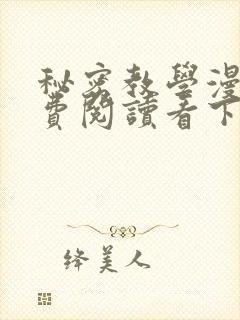 秘密教學漫
費閱讀看下
绛美人